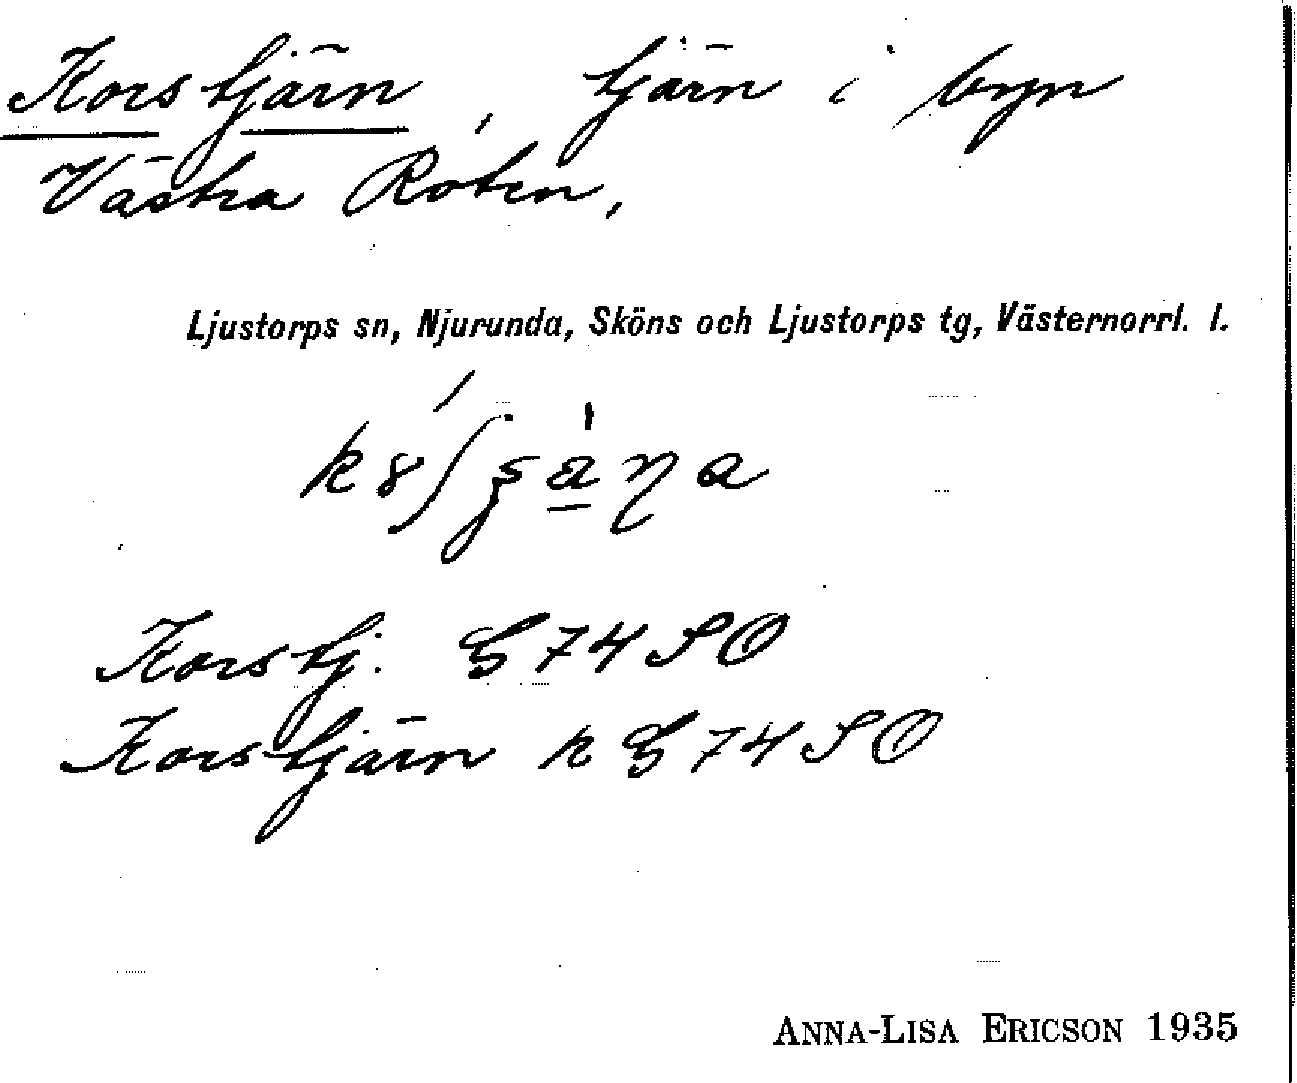 Korstjärn, tjärn i byn
Västra Roten,
Ljustorps sn, Njurunda, Sköns och Ljustorps tg, Västernorrl. l.
Korstj. G 74 SO
Korstjärn k G 74 SO
ANNA-LISA ERICSON 1935